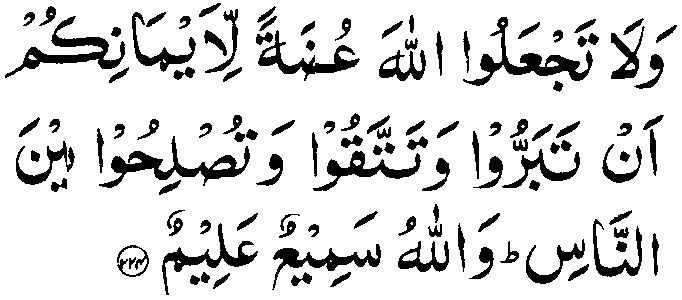 وَلَا تَجْعَلُوا اللّٰهَ عُضَةً لِّاَيْمَانِكُمْ
اَنْ تَبَرُّوْا وَتَتَّقُوْا وَتُصْلِحُوْا بَيْنَ
النَّاسِ ؕ وَاللّٰهُ سَمِيْعٌ عَلِيْمٌ ﴿۲۲۴﴾